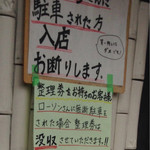 駐車
された方
入店
お断りします.
整理券をお持ちのお客様
ローソンさんに無断駐車を
された場合 整理券は
没収させていただきます!!